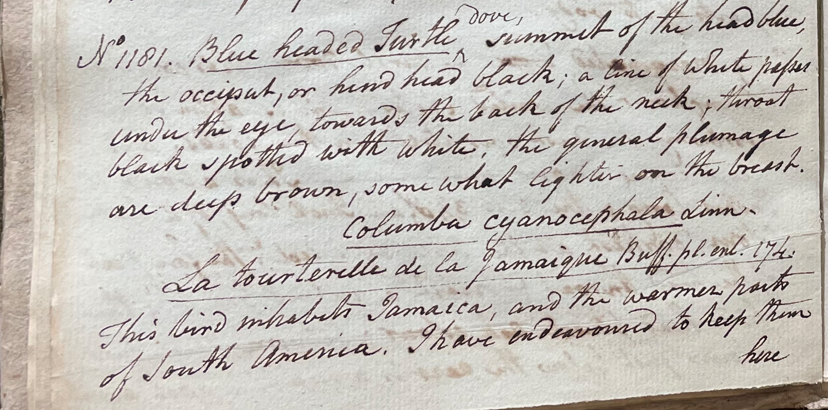 No 1181. Blue headed Turtle dove, summet of the head blue,
the occiput, or hind head black; a line of white passes
under the eye, towards the back of the neck; throat
black spotted with white, the general plumage
are deep brown, some what lighter on the breast.
Columba cyanocephala Linn.
La tourterelle de la Jamaique Buff. pl. enl. 174.
This bird inhabits Jamaica, and the warmer parts
of South America. I have endeavoured to keep them
here